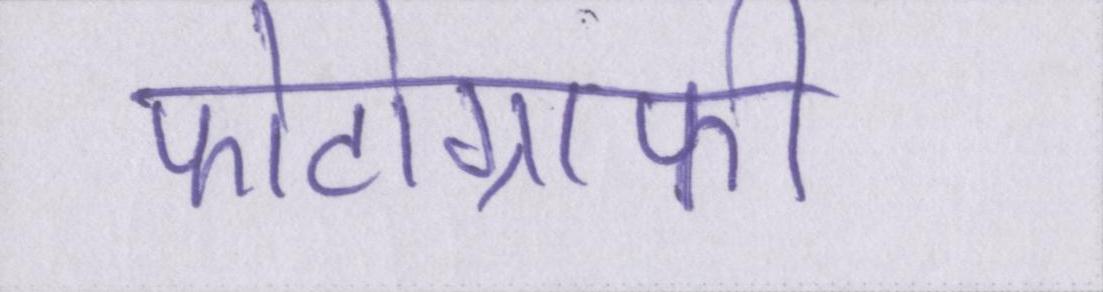 फोटोग्राफी